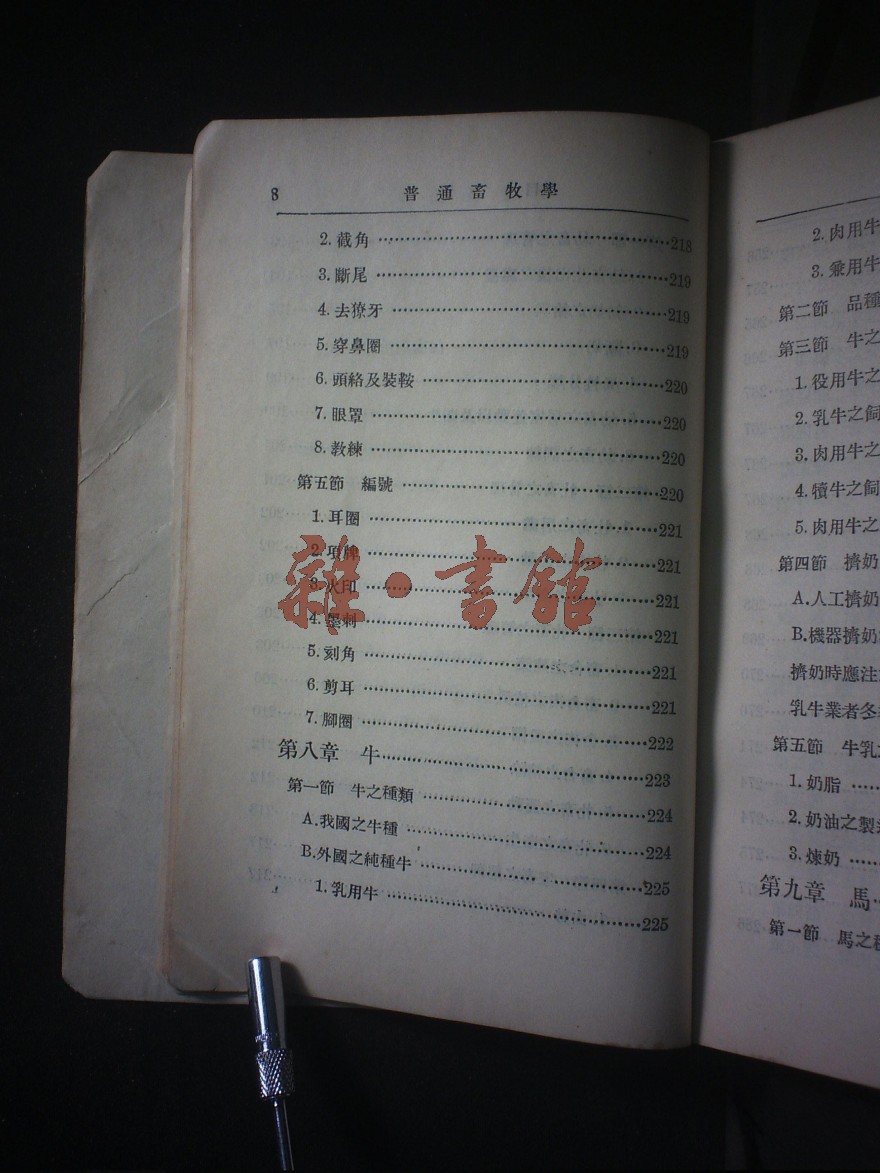 8 普通畜牧學
2. 截角 218
3. 斷尾 219
4. 去獠牙 219
5. 穿鼻圈 219
6. 頭絡及裝鞍 220
7. 眼罩 220
8. 教練 220
第五節 編號 220
1. 耳圈 221
2. 項牌 221
3. 火印 221
4. 墨刺 221
5. 刻角 221
6. 剪耳 221
7. 腳圈 222
第八章 牛 223
第一節 牛之種類 224
A. 我國之牛種 224
B. 外國之純種牛 225
1. 乳用牛 225
雜·書館
2. 肉用牛
3. 兼用牛
第二節 品種
第三節 牛之
1. 役用牛之
2. 乳牛之飼
3. 肉用牛之
4. 犢牛之飼
5. 肉用牛之
第四節 擠奶
A. 人工擠奶
B. 機器擠奶
擠奶時應注
乳牛業者冬
第五節 牛乳
1. 奶脂
2. 奶油之製造
3. 煉奶
第九章 馬
第一節 馬之種